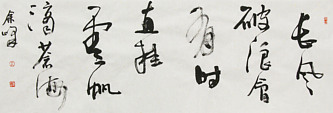 长风
破浪会
有时
直挂
云帆
济沧海